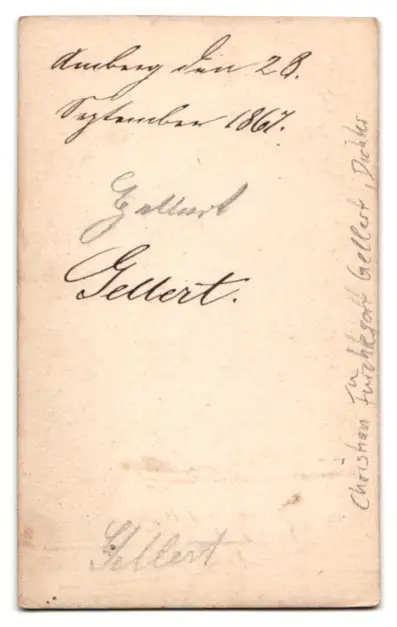 Amberg den 28.
September 1867.
Gellert
Gellert.
Gellert
Christian Fürchtegott Gellert, Dichter